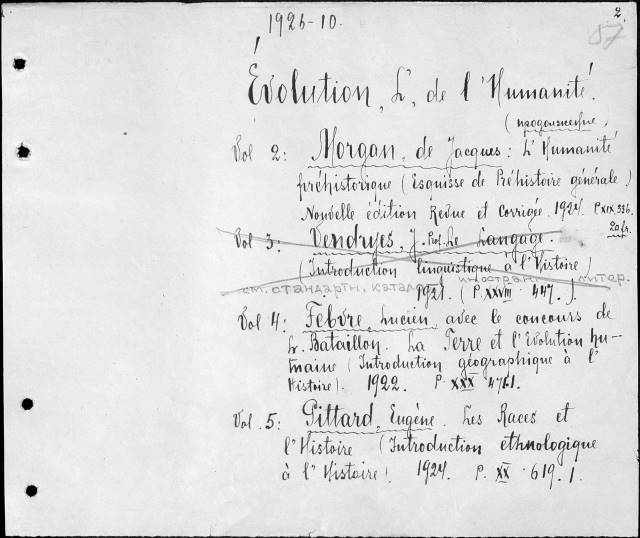 1926-10.
2
87
Évolution, L', de l'Humanité.
(продолжение)
Vol 2: Morgan, de Jacques: L'Humanité
préhistorique (Esquisse de Préhistoire générale)
Nouvelle édition Revue et Corrigée. 1924. P. XIX, 336.
20 fr.
Vol 3: Vendryes, J. Prof. Le Langage.
(Introduction linguistique à l'Histoire)
см. стандартн. каталог иностран. литер.
1921. (P. XXVIII 447.).
Vol 4: Febvre, Lucien, avec le concours de
L. Bataillon. La Terre et l'Evolution hu-
maine (Introduction géographique à l'
Histoire). 1922. P. XXX 471.1
Vol. 5: Pittard, Eugène. Les Races et
l'Histoire (Introduction ethnologique
à l'Histoire). 1924. P. XX 619.1.